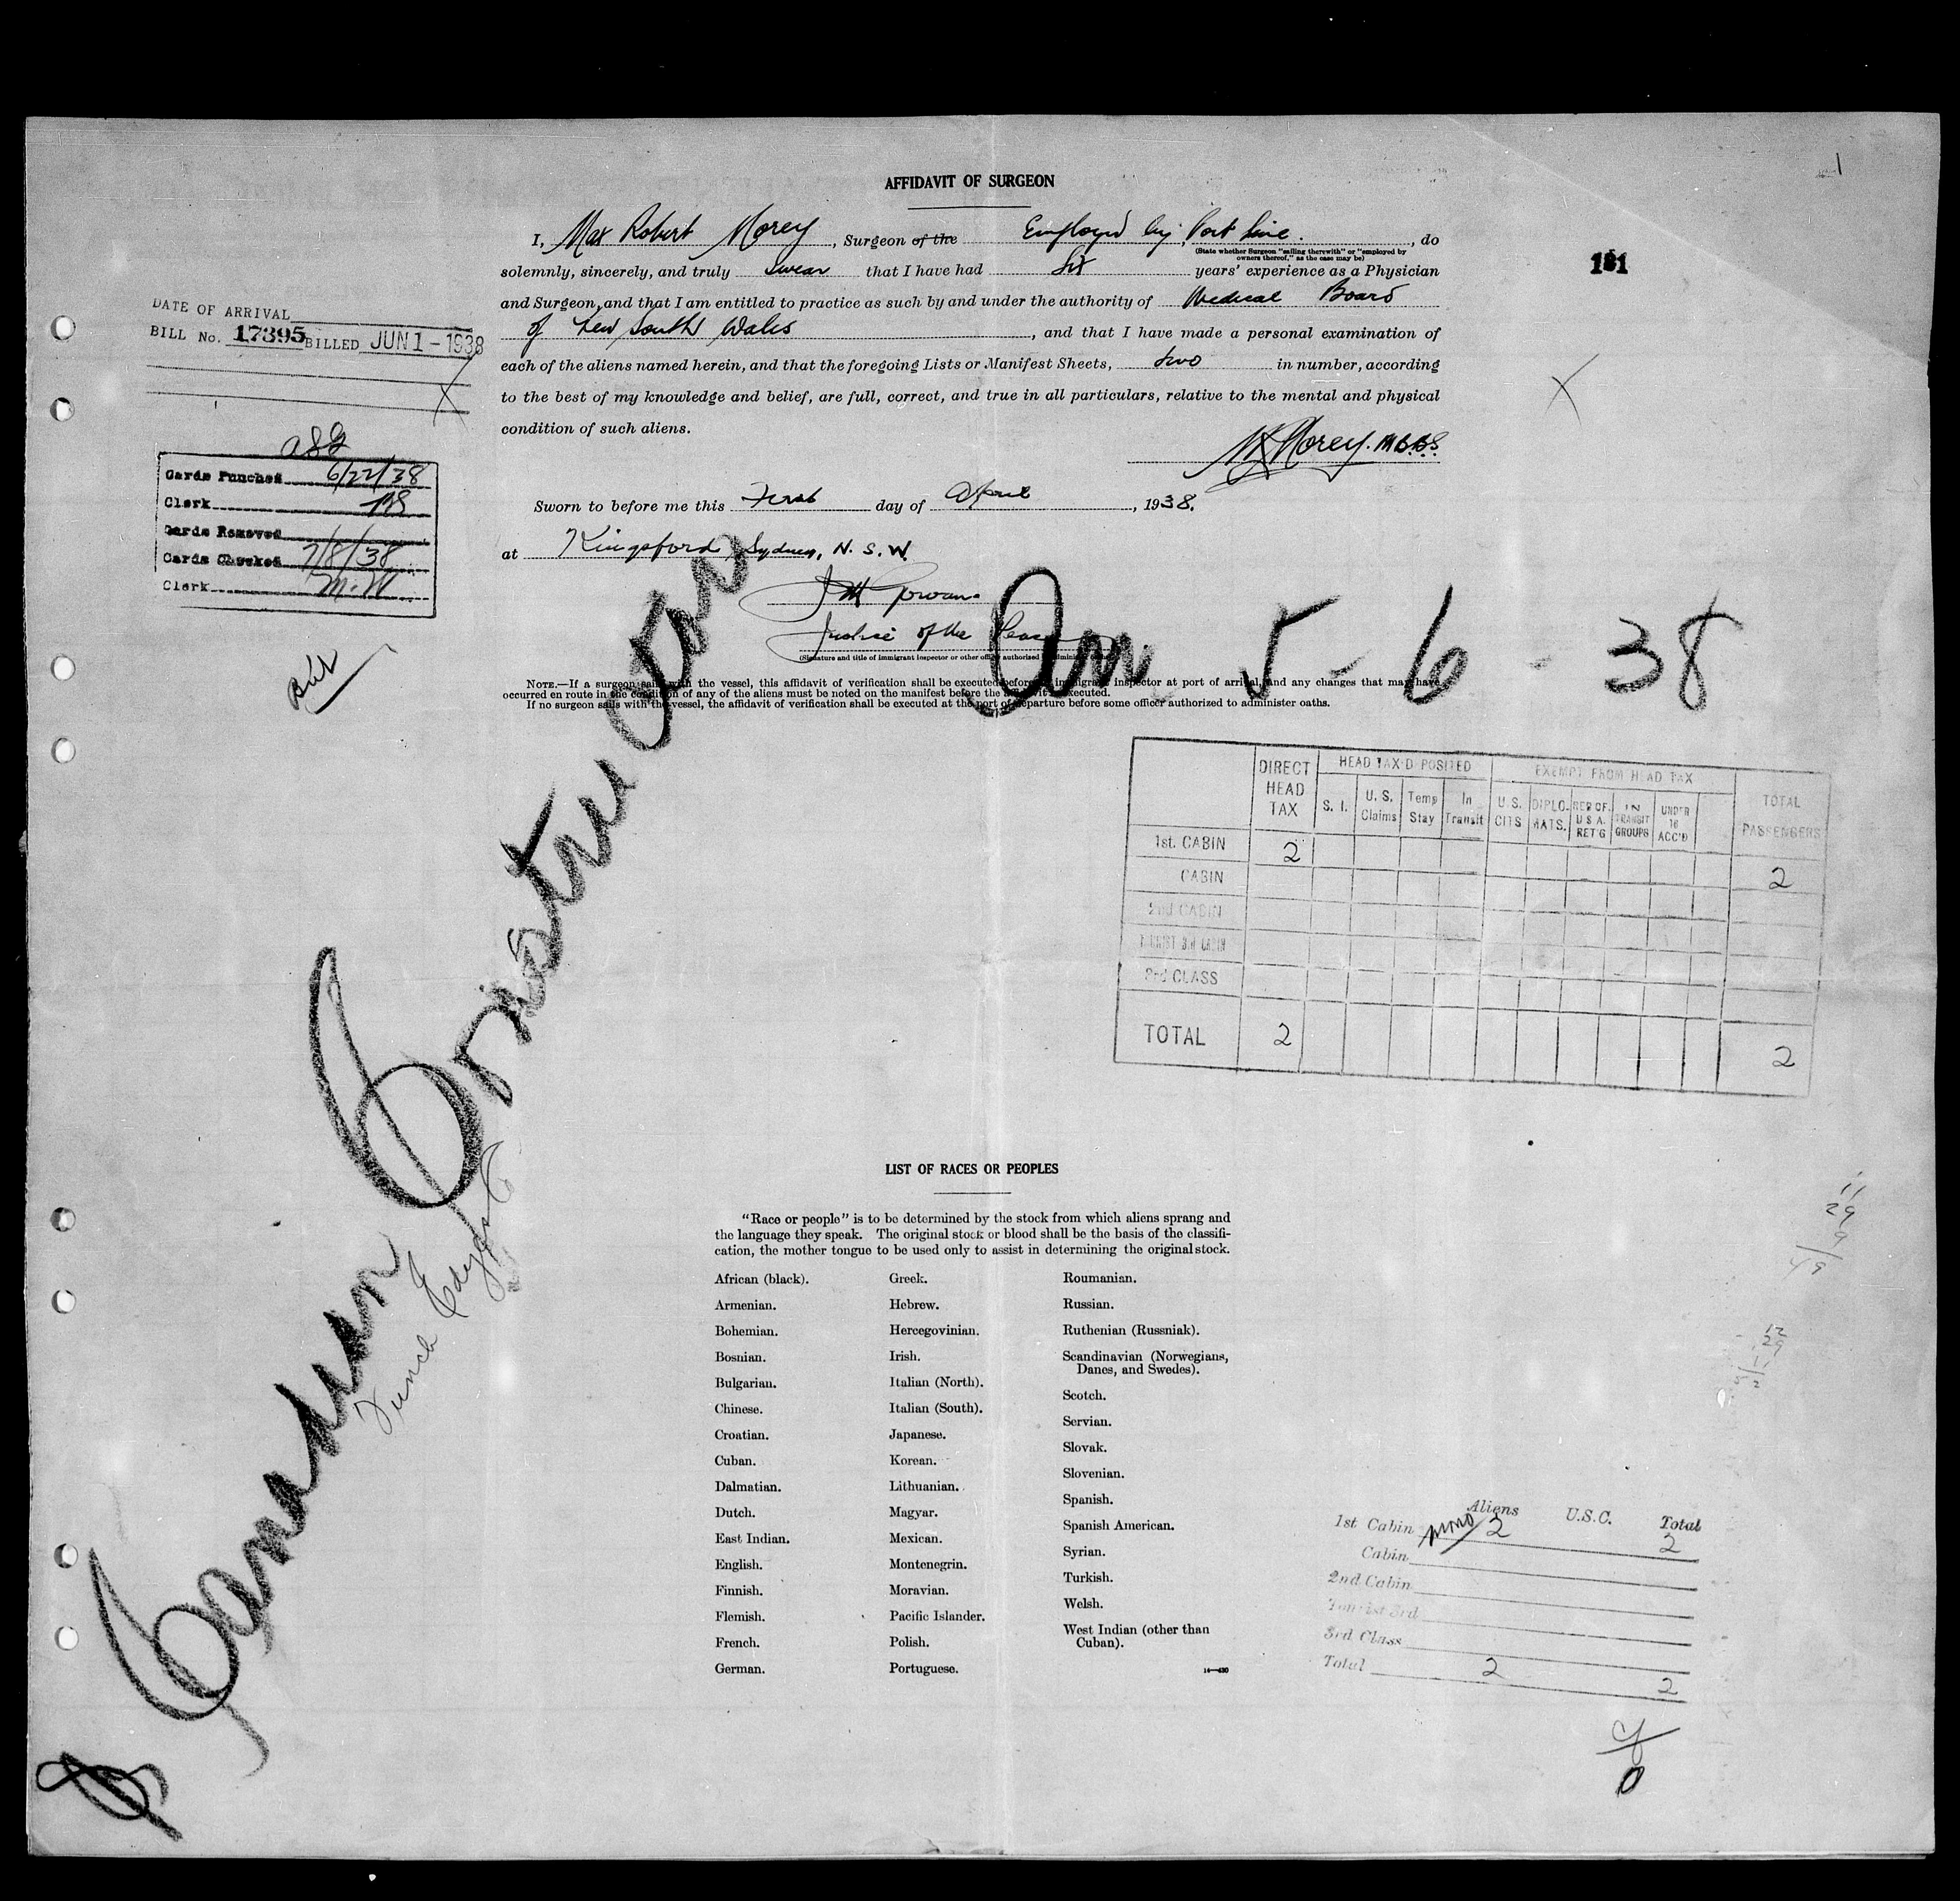 AFFIDAVIT OF SURGEON
I, Max Robert Morey, Surgeon of the Employed by Port Line., do
(State whether Surgeon "sailing therewith" or "employed by
owners thereof," as the case may be)
solemnly, sincerely, and truly swear that I have had six years' experience as a Physician
and Surgeon, and that I am entitled to practice as such by and under the authority of Medical Board
of New South Wales, and that I have made a personal examination of
each of the aliens named herein, and that the foregoing Lists or Manifest Sheets, two in number, according
to the best of my knowledge and belief, are full, correct, and true in all particulars, relative to the mental and physical
condition of such aliens.
Morey. M.B.B.S.
Sworn to before me this First day of April, 1938.
at Kingsford, Sydney, N. S. W.
Justice of the Peace
(Signature and title of immigrant inspector or other officer authorized to administer oaths)
NOTE.—If a surgeon sails with the vessel, this affidavit of verification shall be executed before an immigrant inspector at port of arrival, and any changes that may have
occurred en route in the condition of any of the aliens must be noted on the manifest before the affidavit is executed.
If no surgeon sails with the vessel, the affidavit of verification shall be executed at the port of departure before some officer authorized to administer oaths.
181
DATE OF ARRIVAL
BILL No. 17395 BILLED JUN 1 - 1938
X
X
Cards Punched 6/22/38
Clerk
Cards Removed
Cards Checked 7/8/38
Clerk M.W
5 - 6 - 38
Canadian Constructor
Funch Edye & Co
DIRECT HEAD TAX
HEAD TAX DEPOSITED
EXEMPT FROM HEAD TAX
TOTAL PASSENGERS
S. I.
U. S. Claims
Temp Stay
In Transit
U. S. CITS
DIPLO- MATS.
RES OF. U S A. RET'G
IN TRANSIT GROUPS
UNDER 16 ACC'D
1st. CABIN 2 2
CABIN
2nd CABIN
TOURIST 3rd CABIN
3rd CLASS
TOTAL 2 2
LIST OF RACES OR PEOPLES
"Race or people" is to be determined by the stock from which aliens sprang and
the language they speak. The original stock or blood shall be the basis of the classifi-
cation, the mother tongue to be used only to assist in determining the original stock.
African (black).
Armenian.
Bohemian.
Bosnian.
Bulgarian.
Chinese.
Croatian.
Cuban.
Dalmatian.
Dutch.
East Indian.
English.
Finnish.
Flemish.
French.
German.
Greek.
Hebrew.
Hercegovinian.
Irish.
Italian (North).
Italian (South).
Japanese.
Korean.
Lithuanian.
Magyar.
Mexican.
Montenegrin.
Moravian.
Pacific Islander.
Polish.
Portuguese.
Roumanian.
Russian.
Ruthenian (Russniak).
Scandinavian (Norwegians,
Danes, and Swedes).
Scotch.
Servian.
Slovak.
Slovenian.
Spanish.
Spanish American.
Syrian.
Turkish.
Welsh.
West Indian (other than
Cuban).
Aliens U.S.C. Total
1st Cabin 2 2
Cabin
2nd Cabin
Tourist 3rd
3rd Class
Total 2 2